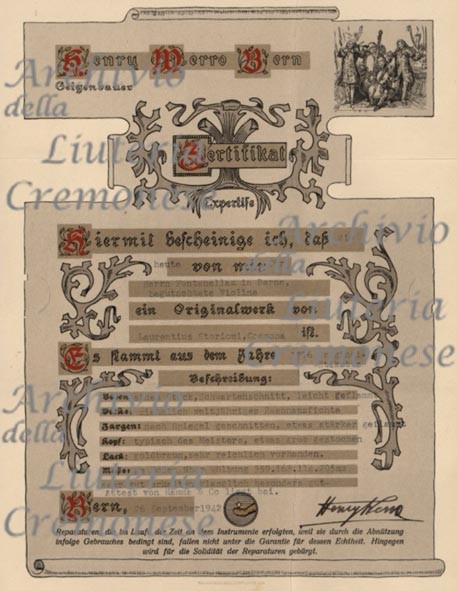 Henry Werro Bern
Geigenbauer
Zertifikat
Expertise
Hiermit bescheinige ich, daß
heute
von mir
Herrn Fontanellaz in Bern,
begutachtete Violine
ein Originalwerk von
Laurentius Storioni, Cremona ist.
Es stammt aus dem Jahre
Beschreibung:
Boden: Schwartenschnitt, leicht geflammt
Decke:
Zargen: nach Spiegel geschnitten, etwas stärker geflammt
Kopf: typisch des Meisters, etwas gestochen
Lack: goldbraun, sehr reichlich vorhanden.
Maße:
besonders gut
Attest von Hamma & Co liegt bei.
Bern, 26 September 1942
Henry Werro
Reparaturen, die im Laufe der Zeit an dem Instrumente erfolgten, weil sie durch die Abnützung
infolge Gebrauches bedingt sind, fallen nicht unter die Garantie für dessen Echtheit. Hingegen
wird für die Solidität der Reparaturen gebürgt.
Archivio
della
Liuteria
Cremonese
Archivio
della
Liuteria
Cremonese
Archivio
della
Liuteria
Cremonese